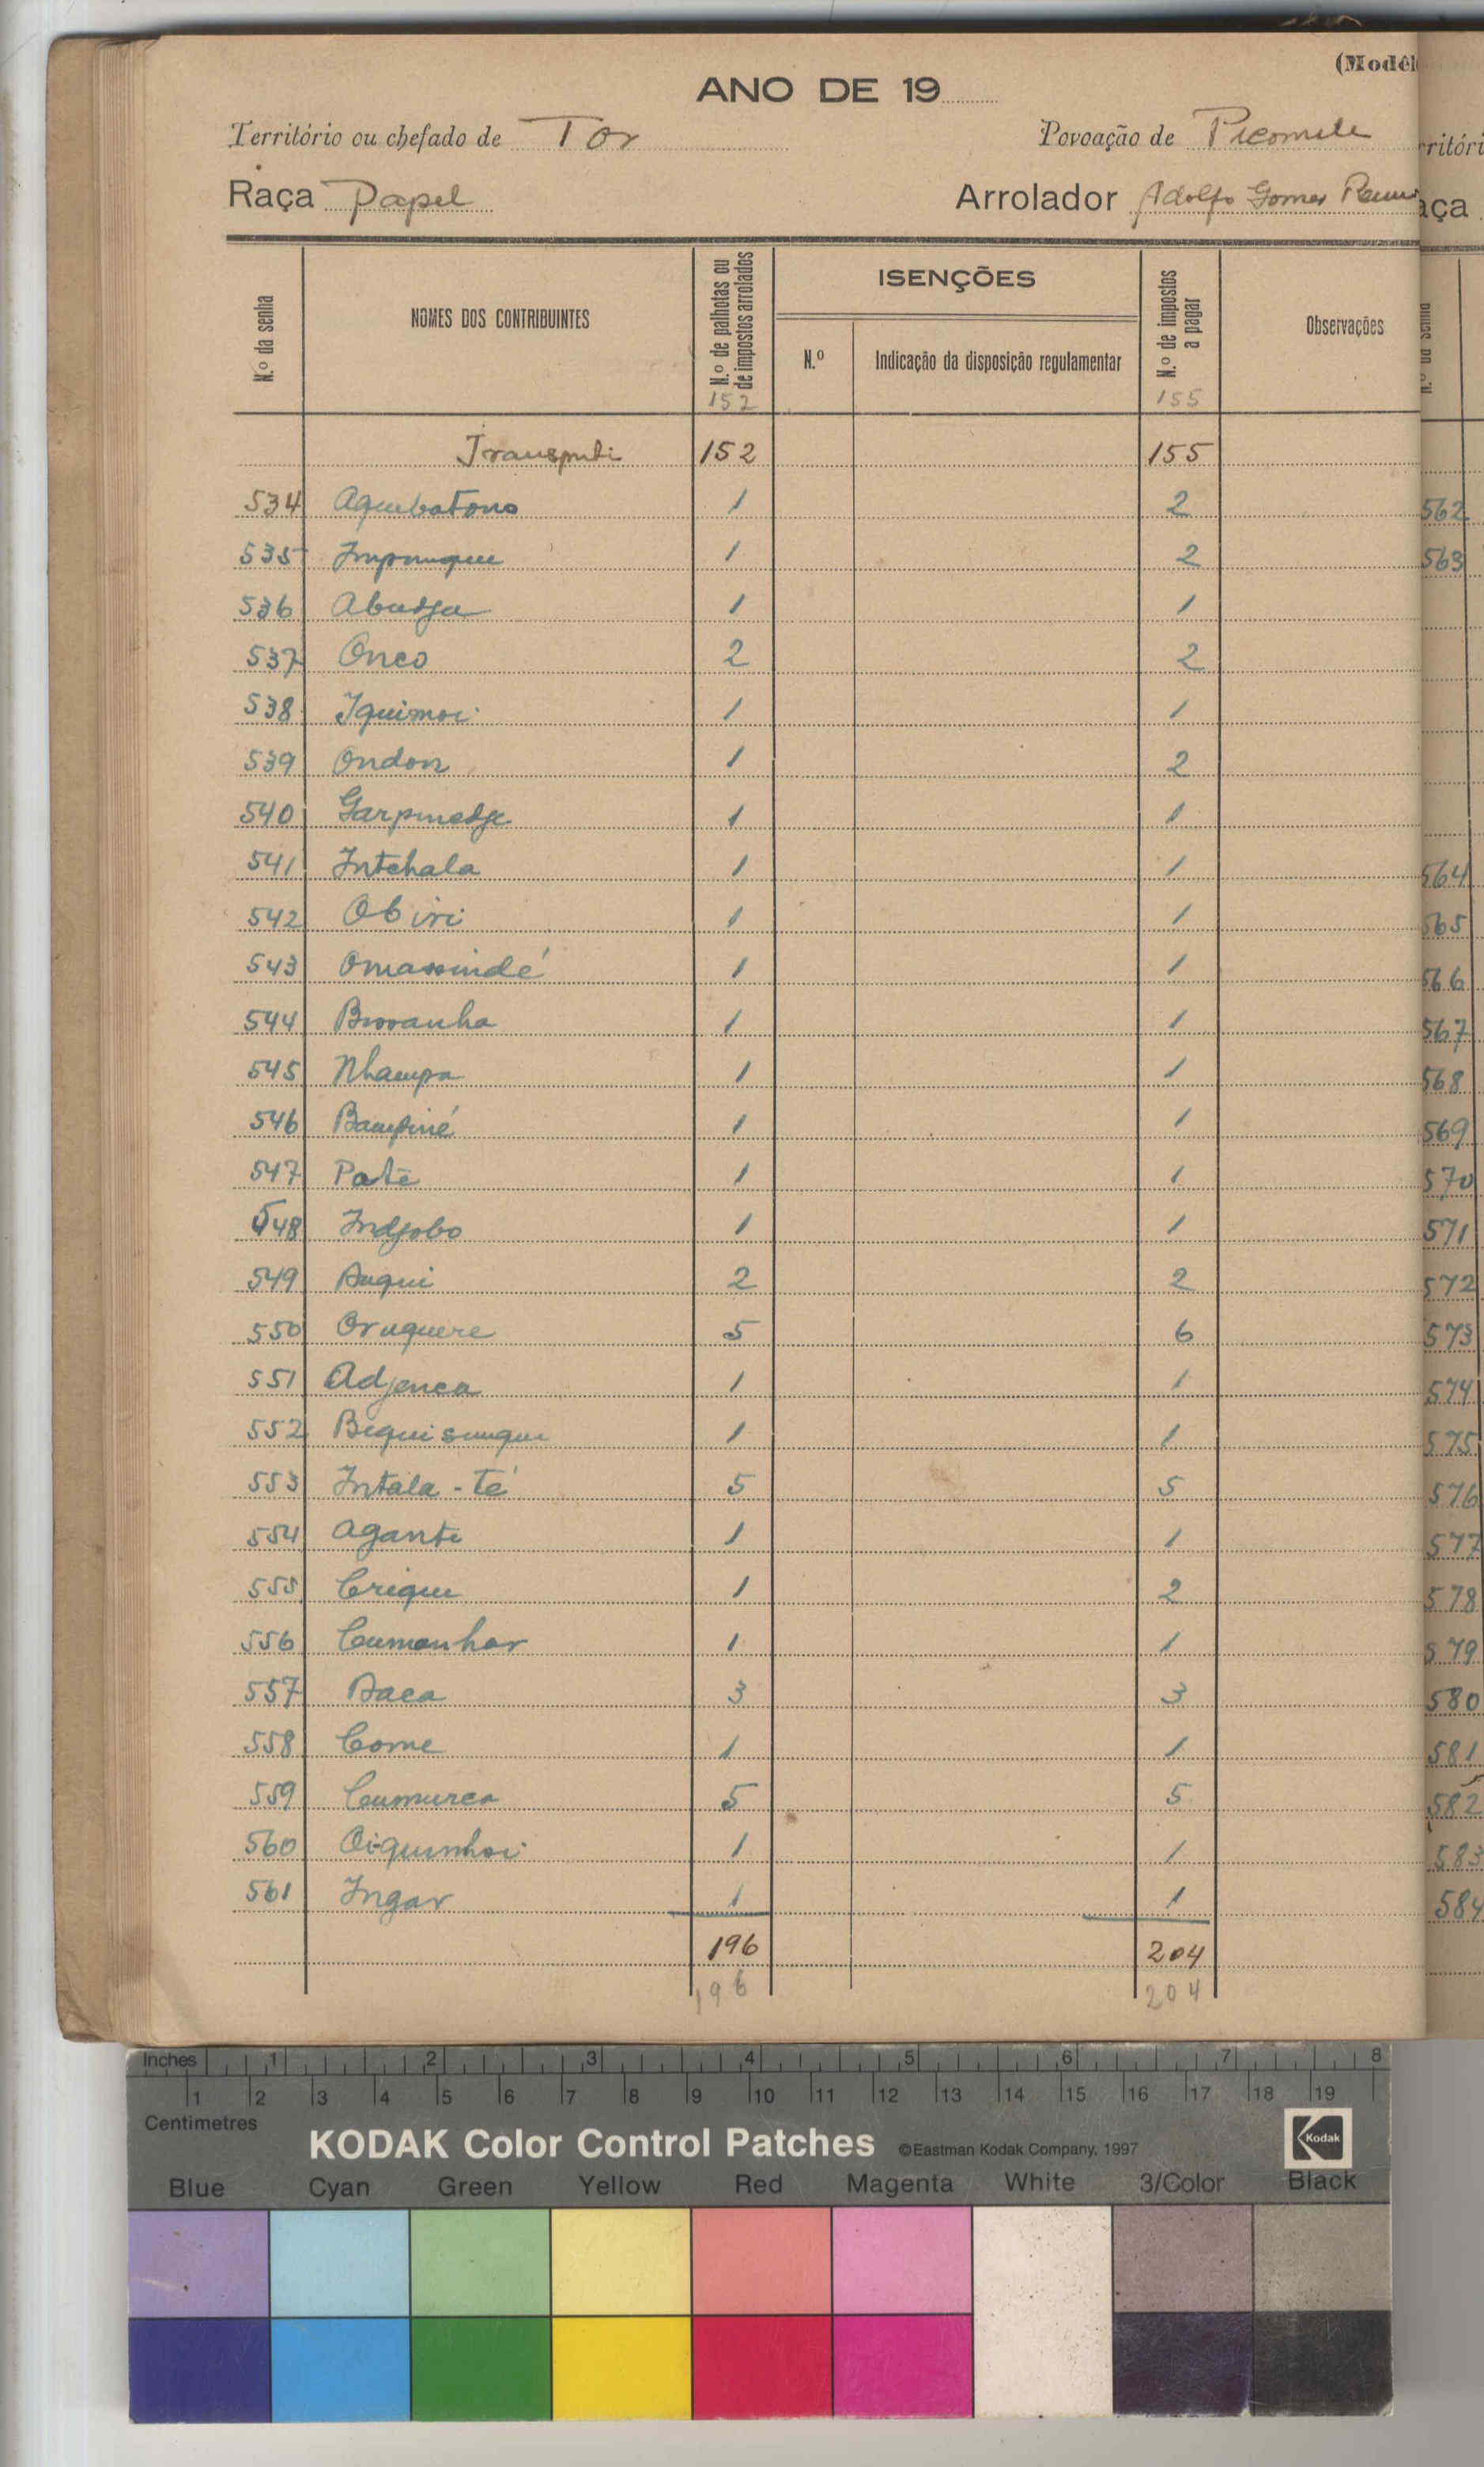 (Modêl
ANO DE 19
Território ou chefado de Tor Povoação de Picomile
Raça Papel Arrolador Adolfo Gomes
N.º da senha NOMES DOS CONTRIBUINTES N.º de palhotas ou de impostos arrolados ISENÇÕES N.º Indicação da disposição regulamentar N.º de impostos a pagar Observações
152 155
152 155
534 Aquebatono 1 2
535 1 2
536 Abudja 1 1
537 Onco 2 2
538 Iquimoi 1 1
539 Ondon 1 2
540 Garpinedje 1 1
541 Intchala 1 1
542 Obiri 1 1
543 Omassindé 1 1
544 1 1
545 Nhampa 1 1
546 1 1
547 Paté 1 1
548 Indjobo 1 1
549 2 2
550 Oruquere 5 6
551 Adjenca 1 1
552 Biquisunque 1 1
553 Intala-té 5 5
554 Agante 1 1
555 Crique 1 2
556 Cumanhar 1 1
557 Baca 3 3
558 Come 1 1
559 Cumurca 5 5
560 Oiquinhoi 1 1
561 Ingar 1 1
196 204
196 204
ritóri
aça
562
563
564
565
566
567
568
569
570
571
572
573
574
575
576
577
578
579
580
581
582
583
584
Inches 1 2 3 4 5 6 7 8
1 2 3 4 5 6 7 8 9 10 11 12 13 14 15 16 17 18 19
Centimetres
KODAK Color Control Patches ©Eastman Kodak Company, 1997 Kodak
Blue Cyan Green Yellow Red Magenta White 3/Color Black